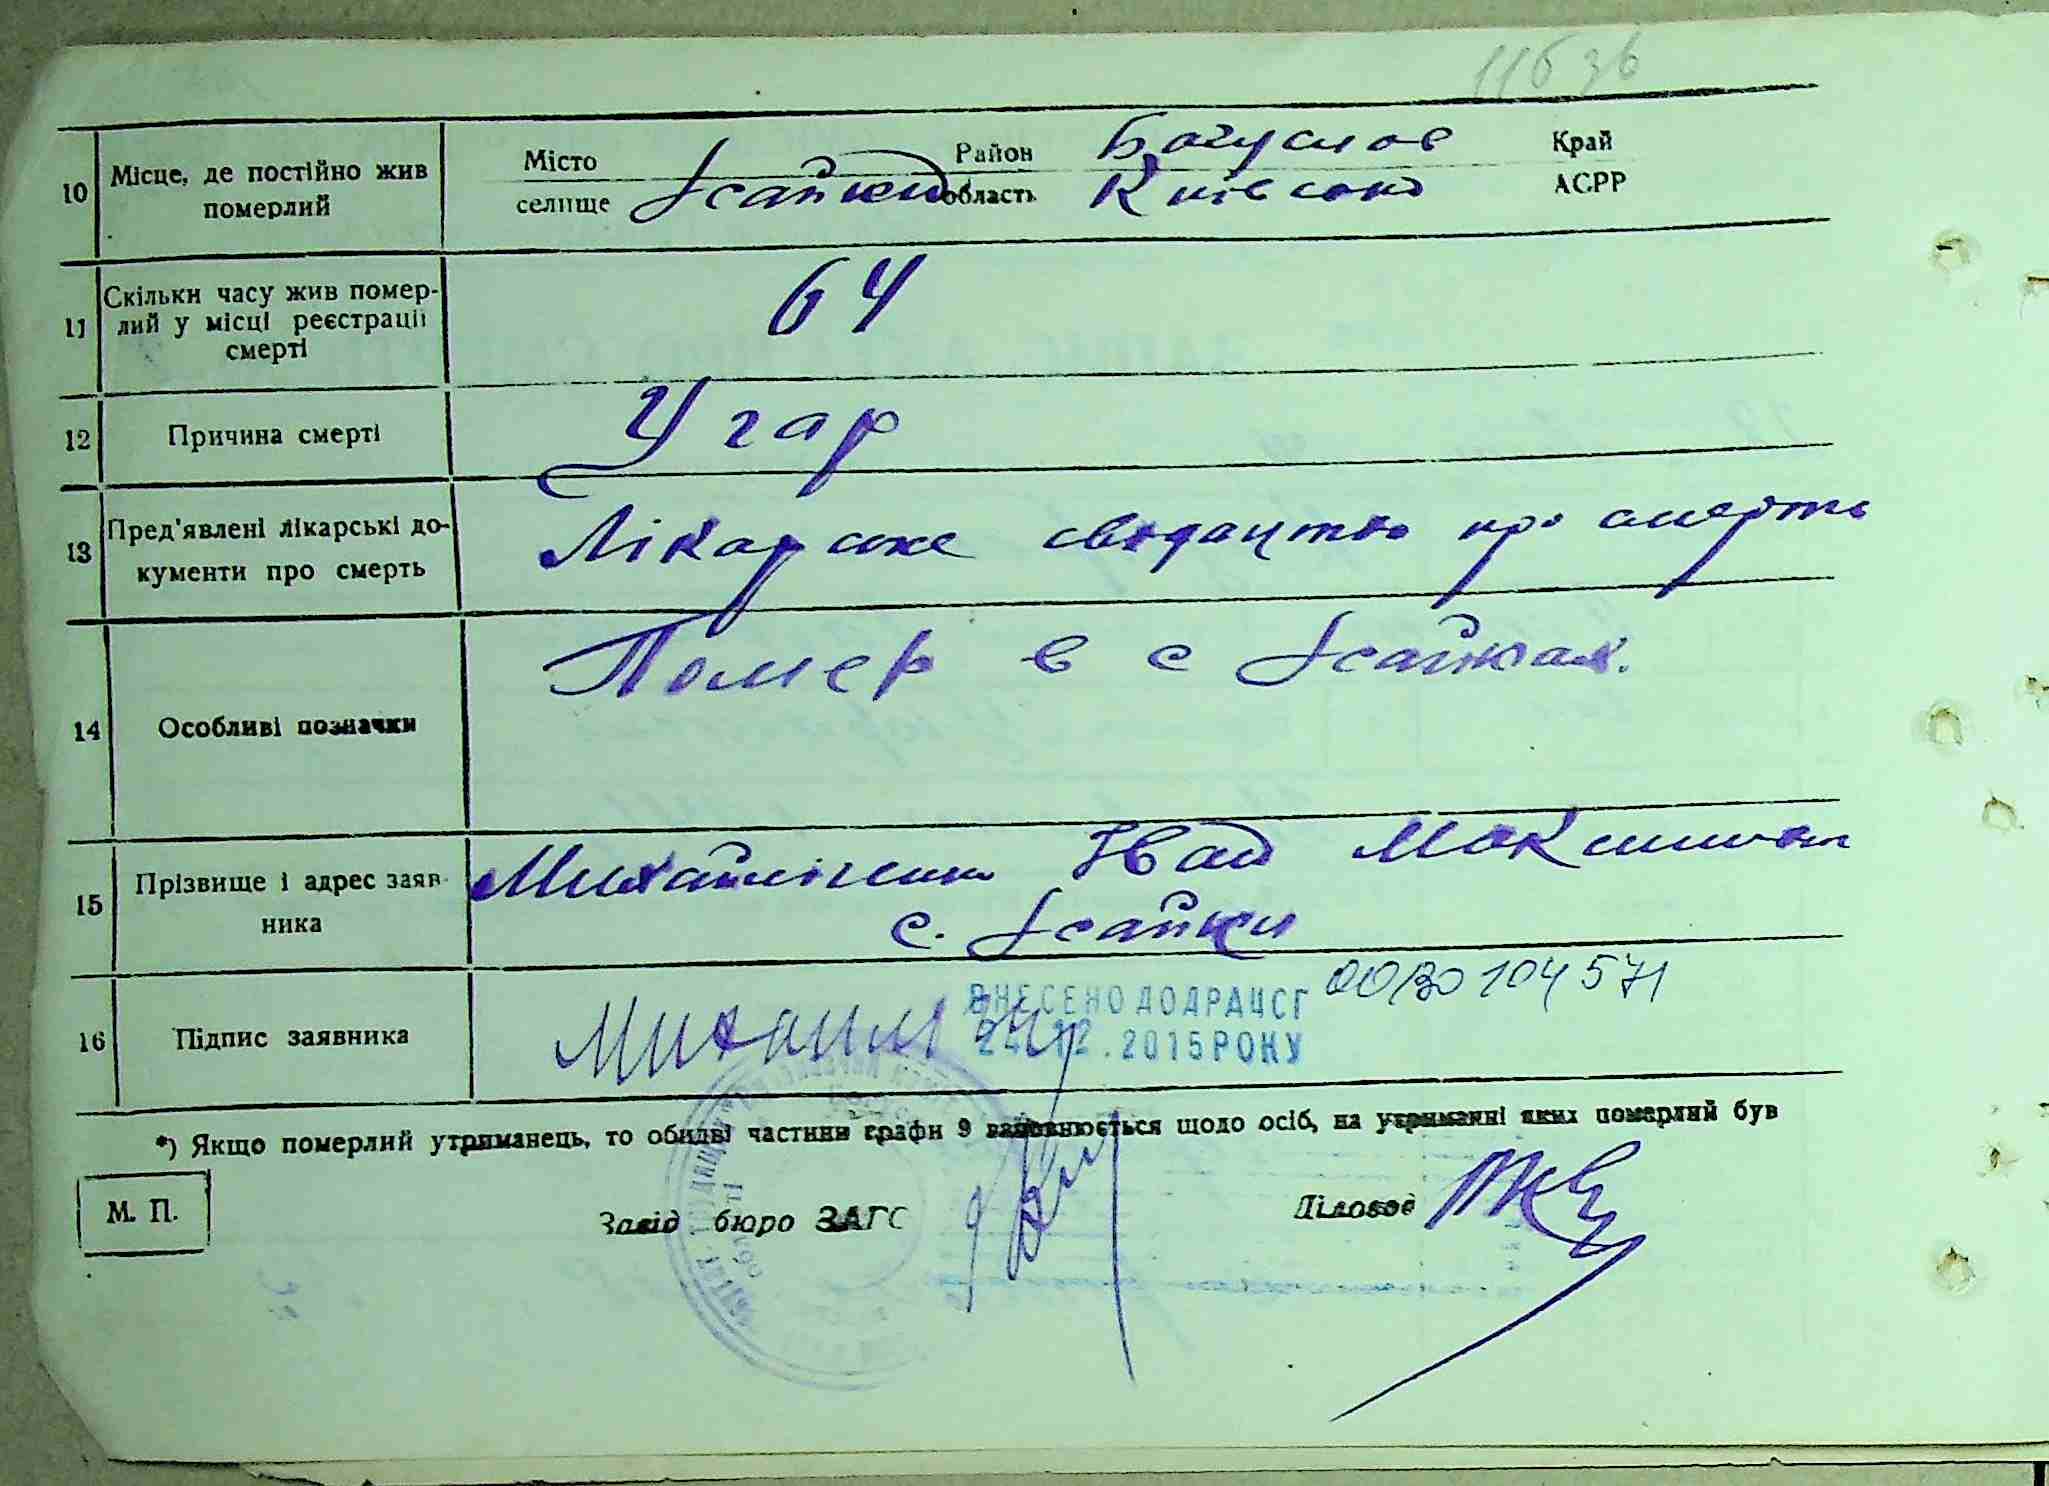 116 зв
10 Місце, де постійно жив померлий Місто селище Ісайки Район Богуслав область Київська Край АСРР
11 Скільки часу жив померлий у місці реєстрації смерті 64
12 Причина смерті Угар
13 Пред'явлені лікарські документи про смерть Лікарське свидацтво про смерть
14 Особливі позначки Помер в с Ісайках.
15 Прізвище і адрес заявника Михайліченко Іван Максимович
с. Ісайки
16 Підпис заявника
ВНЕСЕНО ДО ДРАЦСГ 00130104571
24.12.2015 РОКУ
*) Якщо померлий утриманець, то обидві частини графи 9 заповнюється щодо осіб, на утриманні яких померлий був
М. П.
Завід бюро ЗАГС
Діловод